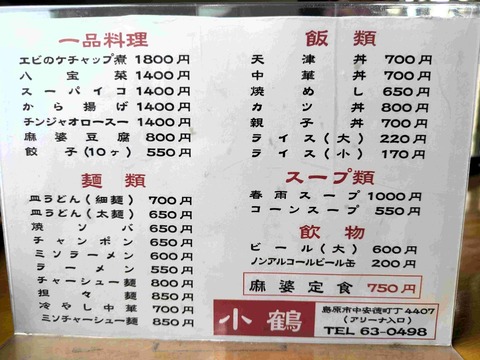 一品料理
エビのケチャップ煮 1800円
八宝菜 1400円
スーパイコ 1400円
から揚げ 1400円
チンジャオロースー 1400円
麻婆豆腐 800円
餃子(10ヶ) 550円
麺類
皿うどん(細麺) 700円
皿うどん(太麺) 650円
焼ソバ 650円
チャンポン 650円
ミソラーメン 600円
ラーメン 550円
チャーシュー麺 800円
担々麺 850円
冷やし中華 700円
ミソチャーシュー麺 850円
飯類
天津丼 700円
中華丼 700円
焼めし 650円
カツ丼 800円
親子丼 700円
ライス(大) 220円
ライス(小) 170円
スープ類
春雨スープ 1000円
コーンスープ 550円
飲物
ビール(大) 600円
ノンアルコールビール缶 200円
麻婆定食 750円
小鶴
島原市中安徳町丁4407
(アリーナ入口)
TEL 63-0498